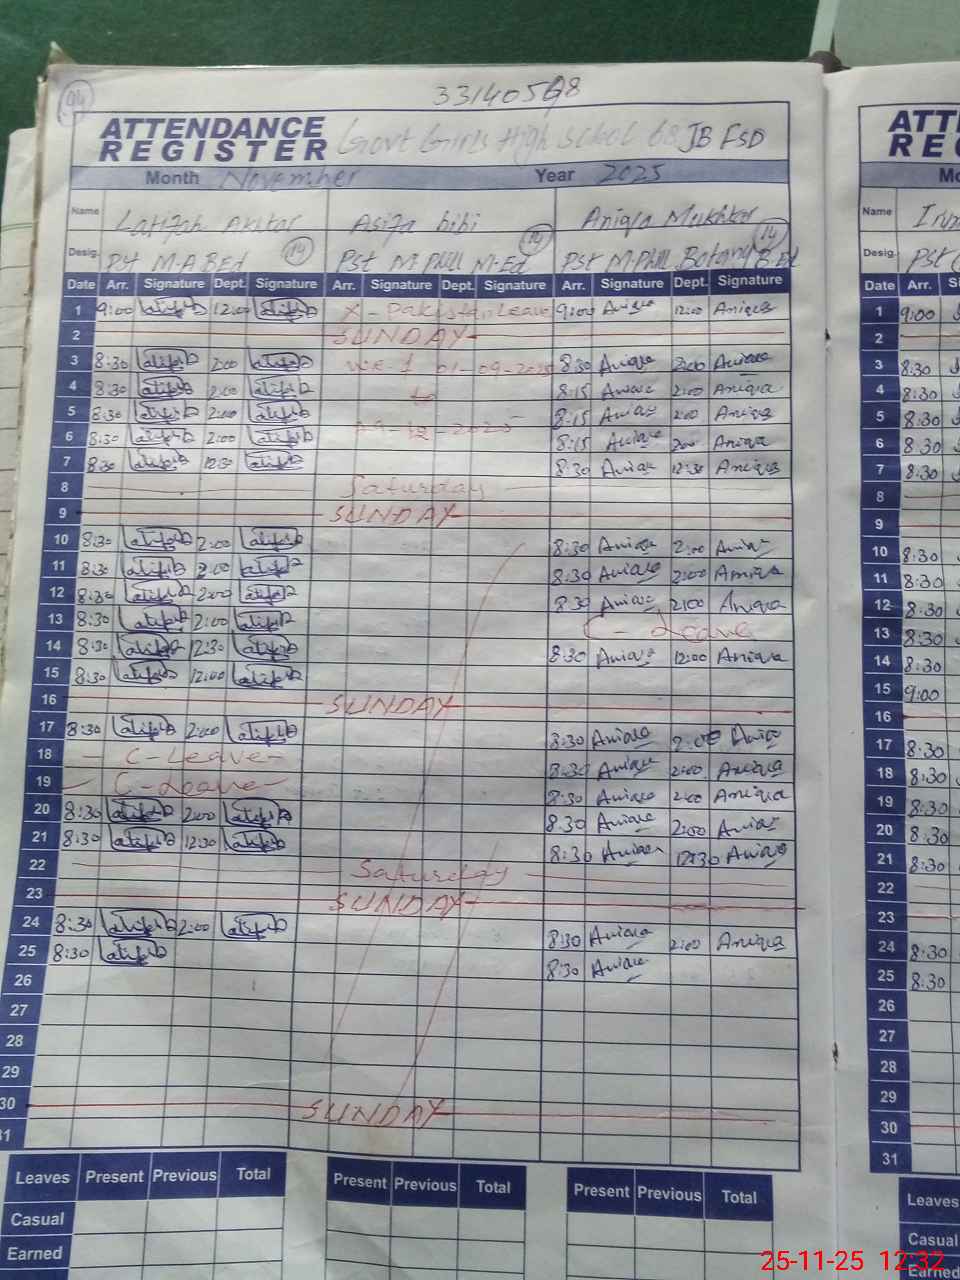 94
33140598
ATTENDANCE REGISTER Govt Girls High School 68 JB FSD
Month November Year 2025
Name Latifah Akhtar Asifa bibi Aniqa Mukhtar
Desig. Pst M.A BEd 14 Pst M.Phill M-Ed 14 Pst M.Phill Botany B.Ed 14
Date Arr. Signature Dept. Signature Arr. Signature Dept. Signature Arr. Signature Dept. Signature
1 9:00 Latifah 12:00 Latifah X - Pakistan Leave 9:00 Aniqa 12:00 Aniqa
2 SUNDAY
3 8:30 Latifah 2:00 Latifah 01-09-2025 8:30 Aniqa 2:00 Aniqa
4 8:30 Latifah 2:00 Latifah to 8:15 Aniqa 2:00 Aniqa
5 8:30 Latifah 2:00 Latifah 8:15 Aniqa 2:00 Aniqa
6 8:30 Latifah 2:00 Latifah 8:15 Aniqa 2:00 Aniqa
7 8:30 Latifah 12:30 Latifah 8:30 Aniqa 12:30 Aniqa
8 Saturday
9 SUNDAY
10 8:30 Latifah 2:00 Latifah 8:30 Aniqa 2:00 Aniqa
11 8:30 Latifah 2:00 Latifah 8:30 Aniqa 2:00 Aniqa
12 8:30 Latifah 2:00 Latifah 8:30 Aniqa 2:00 Aniqa
13 8:30 Latifah 2:00 Latifah C - Leave
14 8:30 Latifah 12:30 Latifah 8:30 Aniqa 12:00 Aniqa
15 8:30 Latifah 12:00 Latifah
16 SUNDAY
17 8:30 Latifah 2:00 Latifah 8:30 Aniqa 2:00 Aniqa
18 - C-Leave- 8:30 Aniqa 2:00 Aniqa
19 - C-Leave- 8:30 Aniqa 2:00 Aniqa
20 8:30 Latifah 2:00 Latifah 8:30 Aniqa 2:00 Aniqa
21 8:30 Latifah 12:30 Latifah 8:30 Aniqa 12:30 Aniqa
22 Saturday
23 SUNDAY
24 8:30 Latifah 2:00 Latifah 8:30 Aniqa 2:00 Aniqa
25 8:30 Latifah 8:30 Aniqa
26
27
28
29
30 SUNDAY
31
Leaves Present Previous Total Present Previous Total Present Previous Total
Casual
Earned
ATT
RE
Name
Desig. Pst
Date Arr.
1 9:00
2
3 8:30
4 8:30
5 8:30
6 8:30
7 8:30
8
9
10 8:30
11 8:30
12 8:30
13 8:30
14 8:30
15 9:00
16
17 8:30
18 8:30
19 8:30
20 8:30
21 8:30
22
23
24 8:30
25 8:30
26
27
28
29
30
31
Leaves
Casual
Earned
25-11-25 12:32